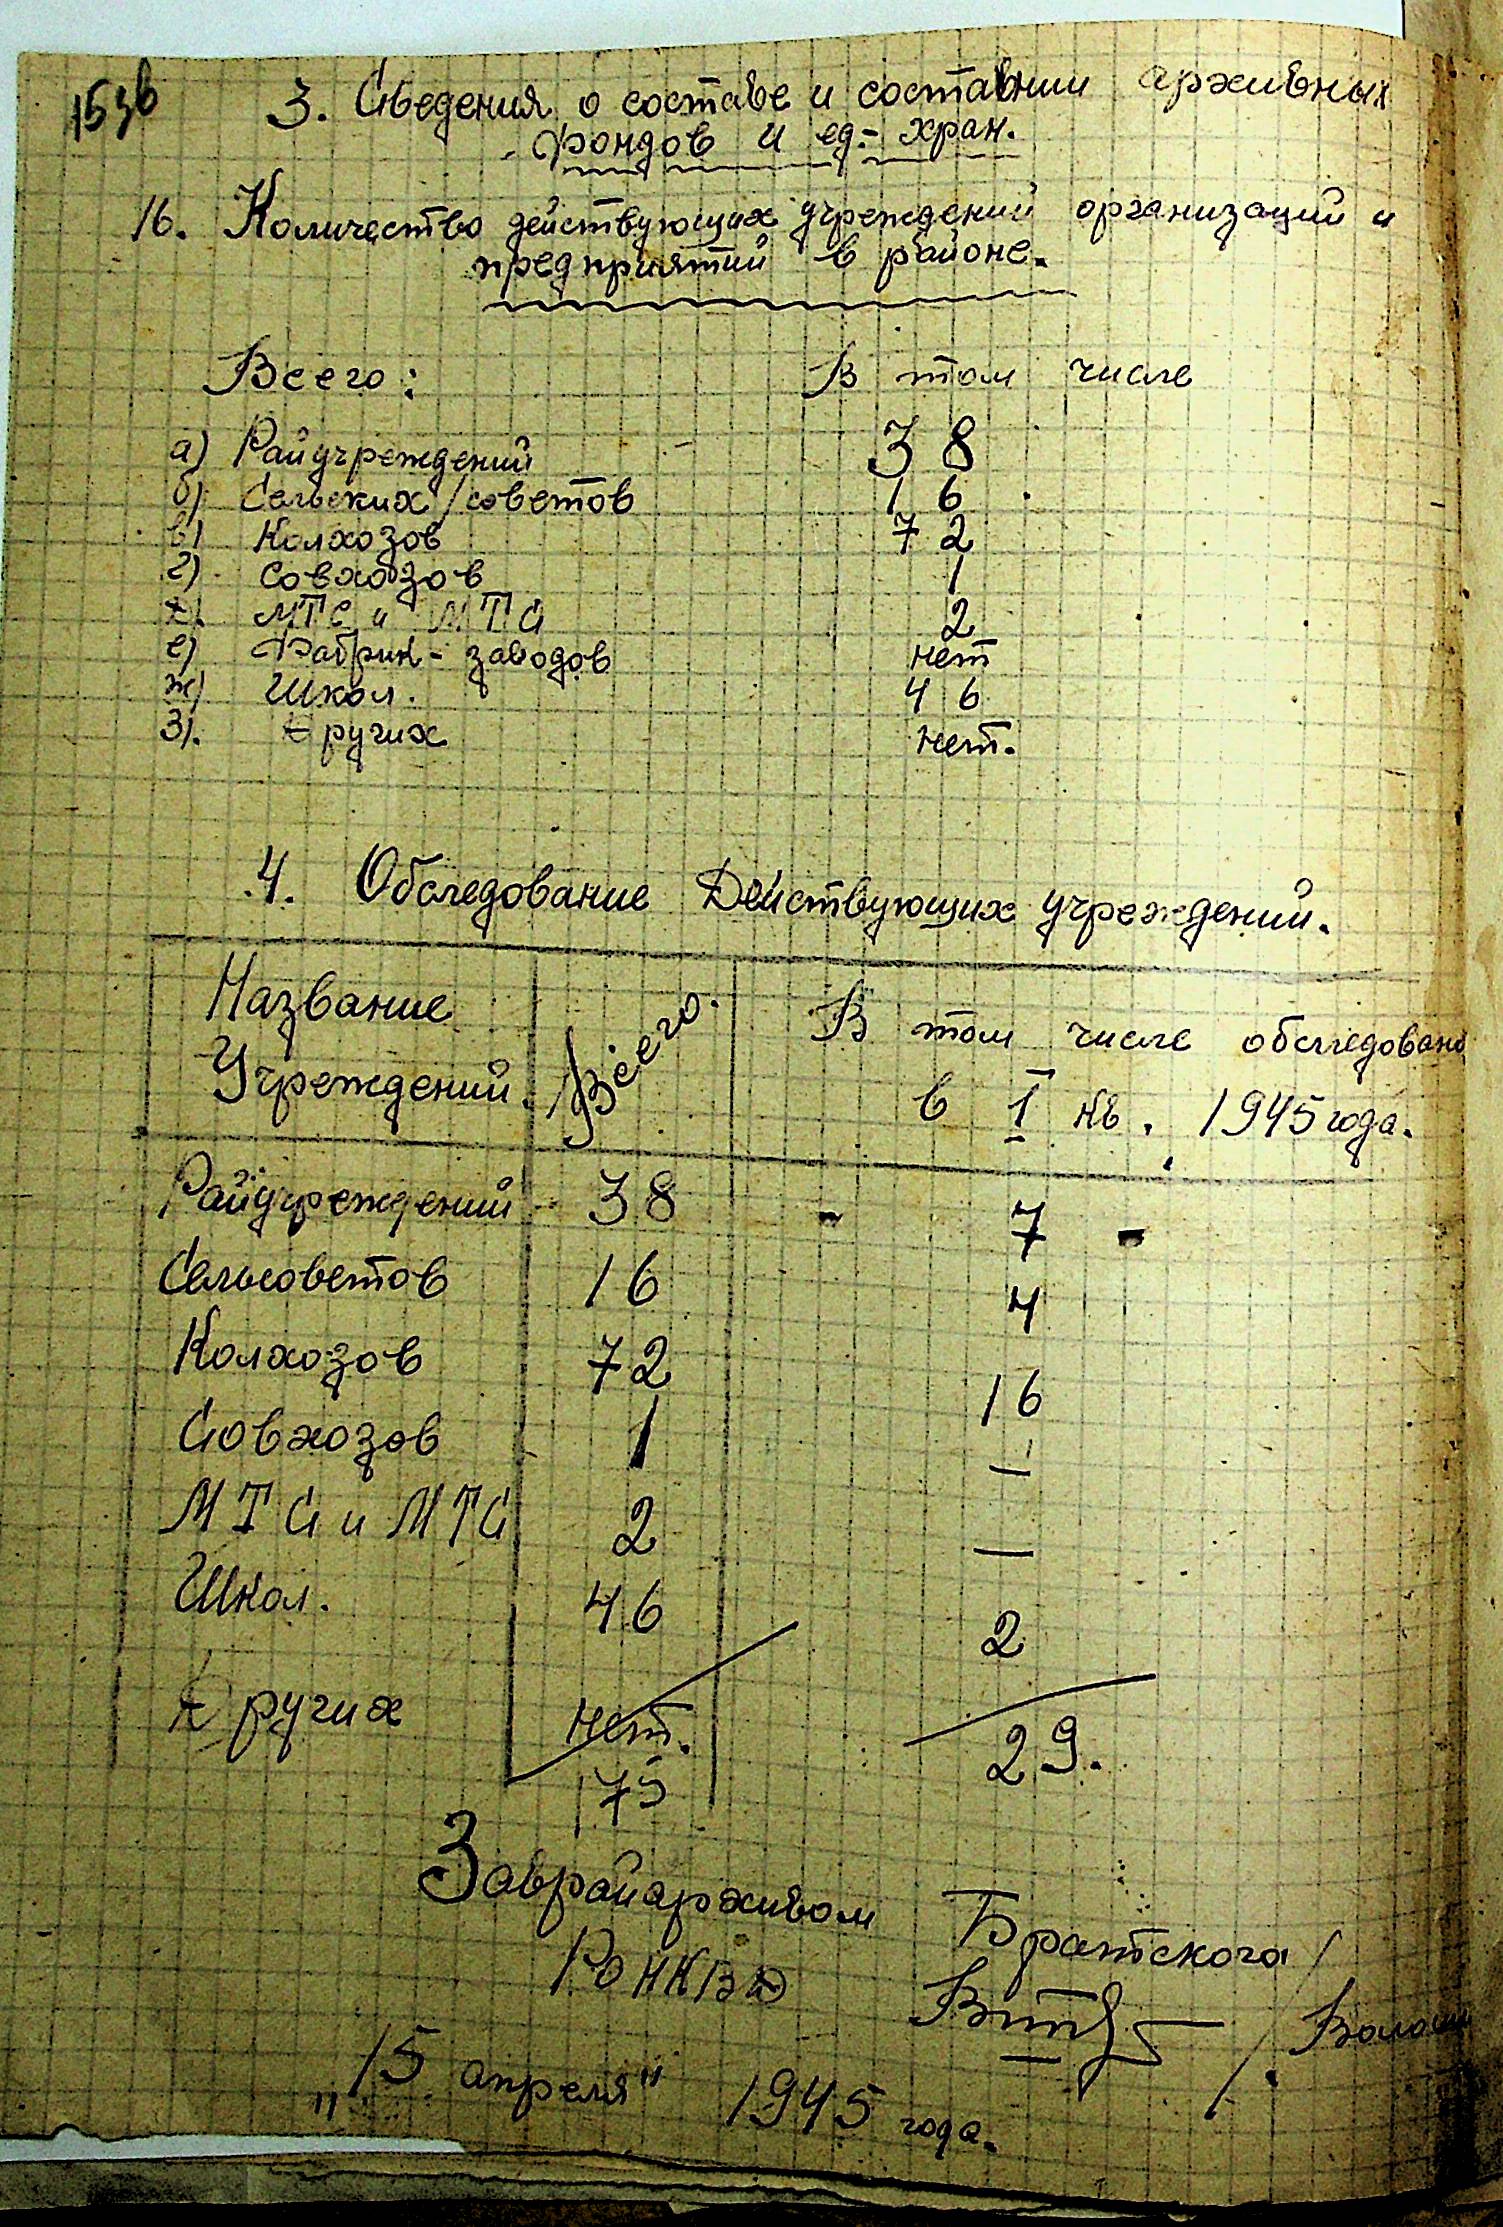 3. Сведения о составе и состаянии архивных
фондов и ед.- хран.
16. Количество действующих учреждений организаций и
предприятий в районе.
Всего: В том числе
а) Райучреждений 38
б) Сельских/советов 16
в) Колхозов 72
г) Совхозов 1
д). МТС и МТС 2
е) Фабрик-заводов нет
ж) Школ. 46
з). Других нет.
4. Обследование Действующих учреждений.
Название Учреждений. Всего. В том числе обследовано
в I кв. 1945 года.
Райучреждений - 38 - 7 -
Сельсоветов 16 4
Колхозов 72 16
Совхозов 1 —
МТС и МТС 2 —
Школ. 46 2
Других нет.
175 29.
Заврайархивом Братского
РО НКВД
"15 апреля" 1945 года.